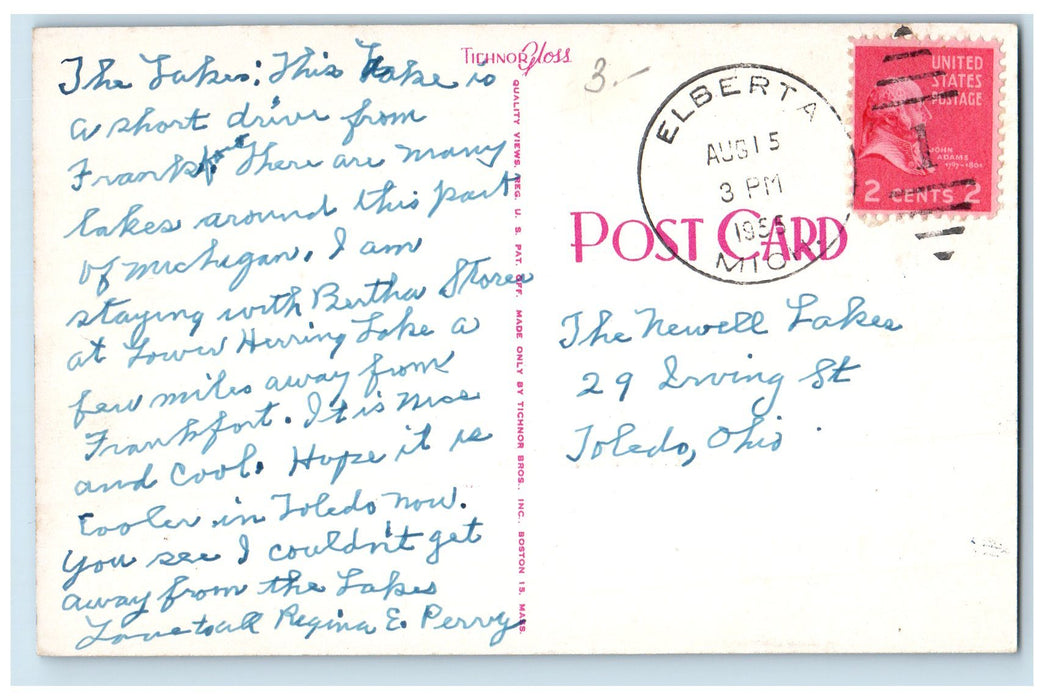 The Lakes: This Lake is
a short drive from
Frankfort There are many
lakes around this part
of Michigan. I am
staying with Bertha Storer
at Lower Herring Lake a
few miles away from
Frankfort. It is nice
and cool. Hope it is
cooler in Toledo now.
You see I couldn't get
away from the Lakes
Love to all Regina E. Perry
TICHNOR Gloss
QUALITY VIEWS, REG. U. S. PAT. OFF. MADE ONLY BY TICHNOR BROS., INC., BOSTON 15, MASS.
3.-
ELBERTA
AUG 15
3 PM
1955
MICH.
UNITED
STATES
POSTAGE
1
JOHN
ADAMS
1797-1801
2 CENTS 2
POST CARD
The Newell Lakes
29 Irving St
Toledo, Ohio.